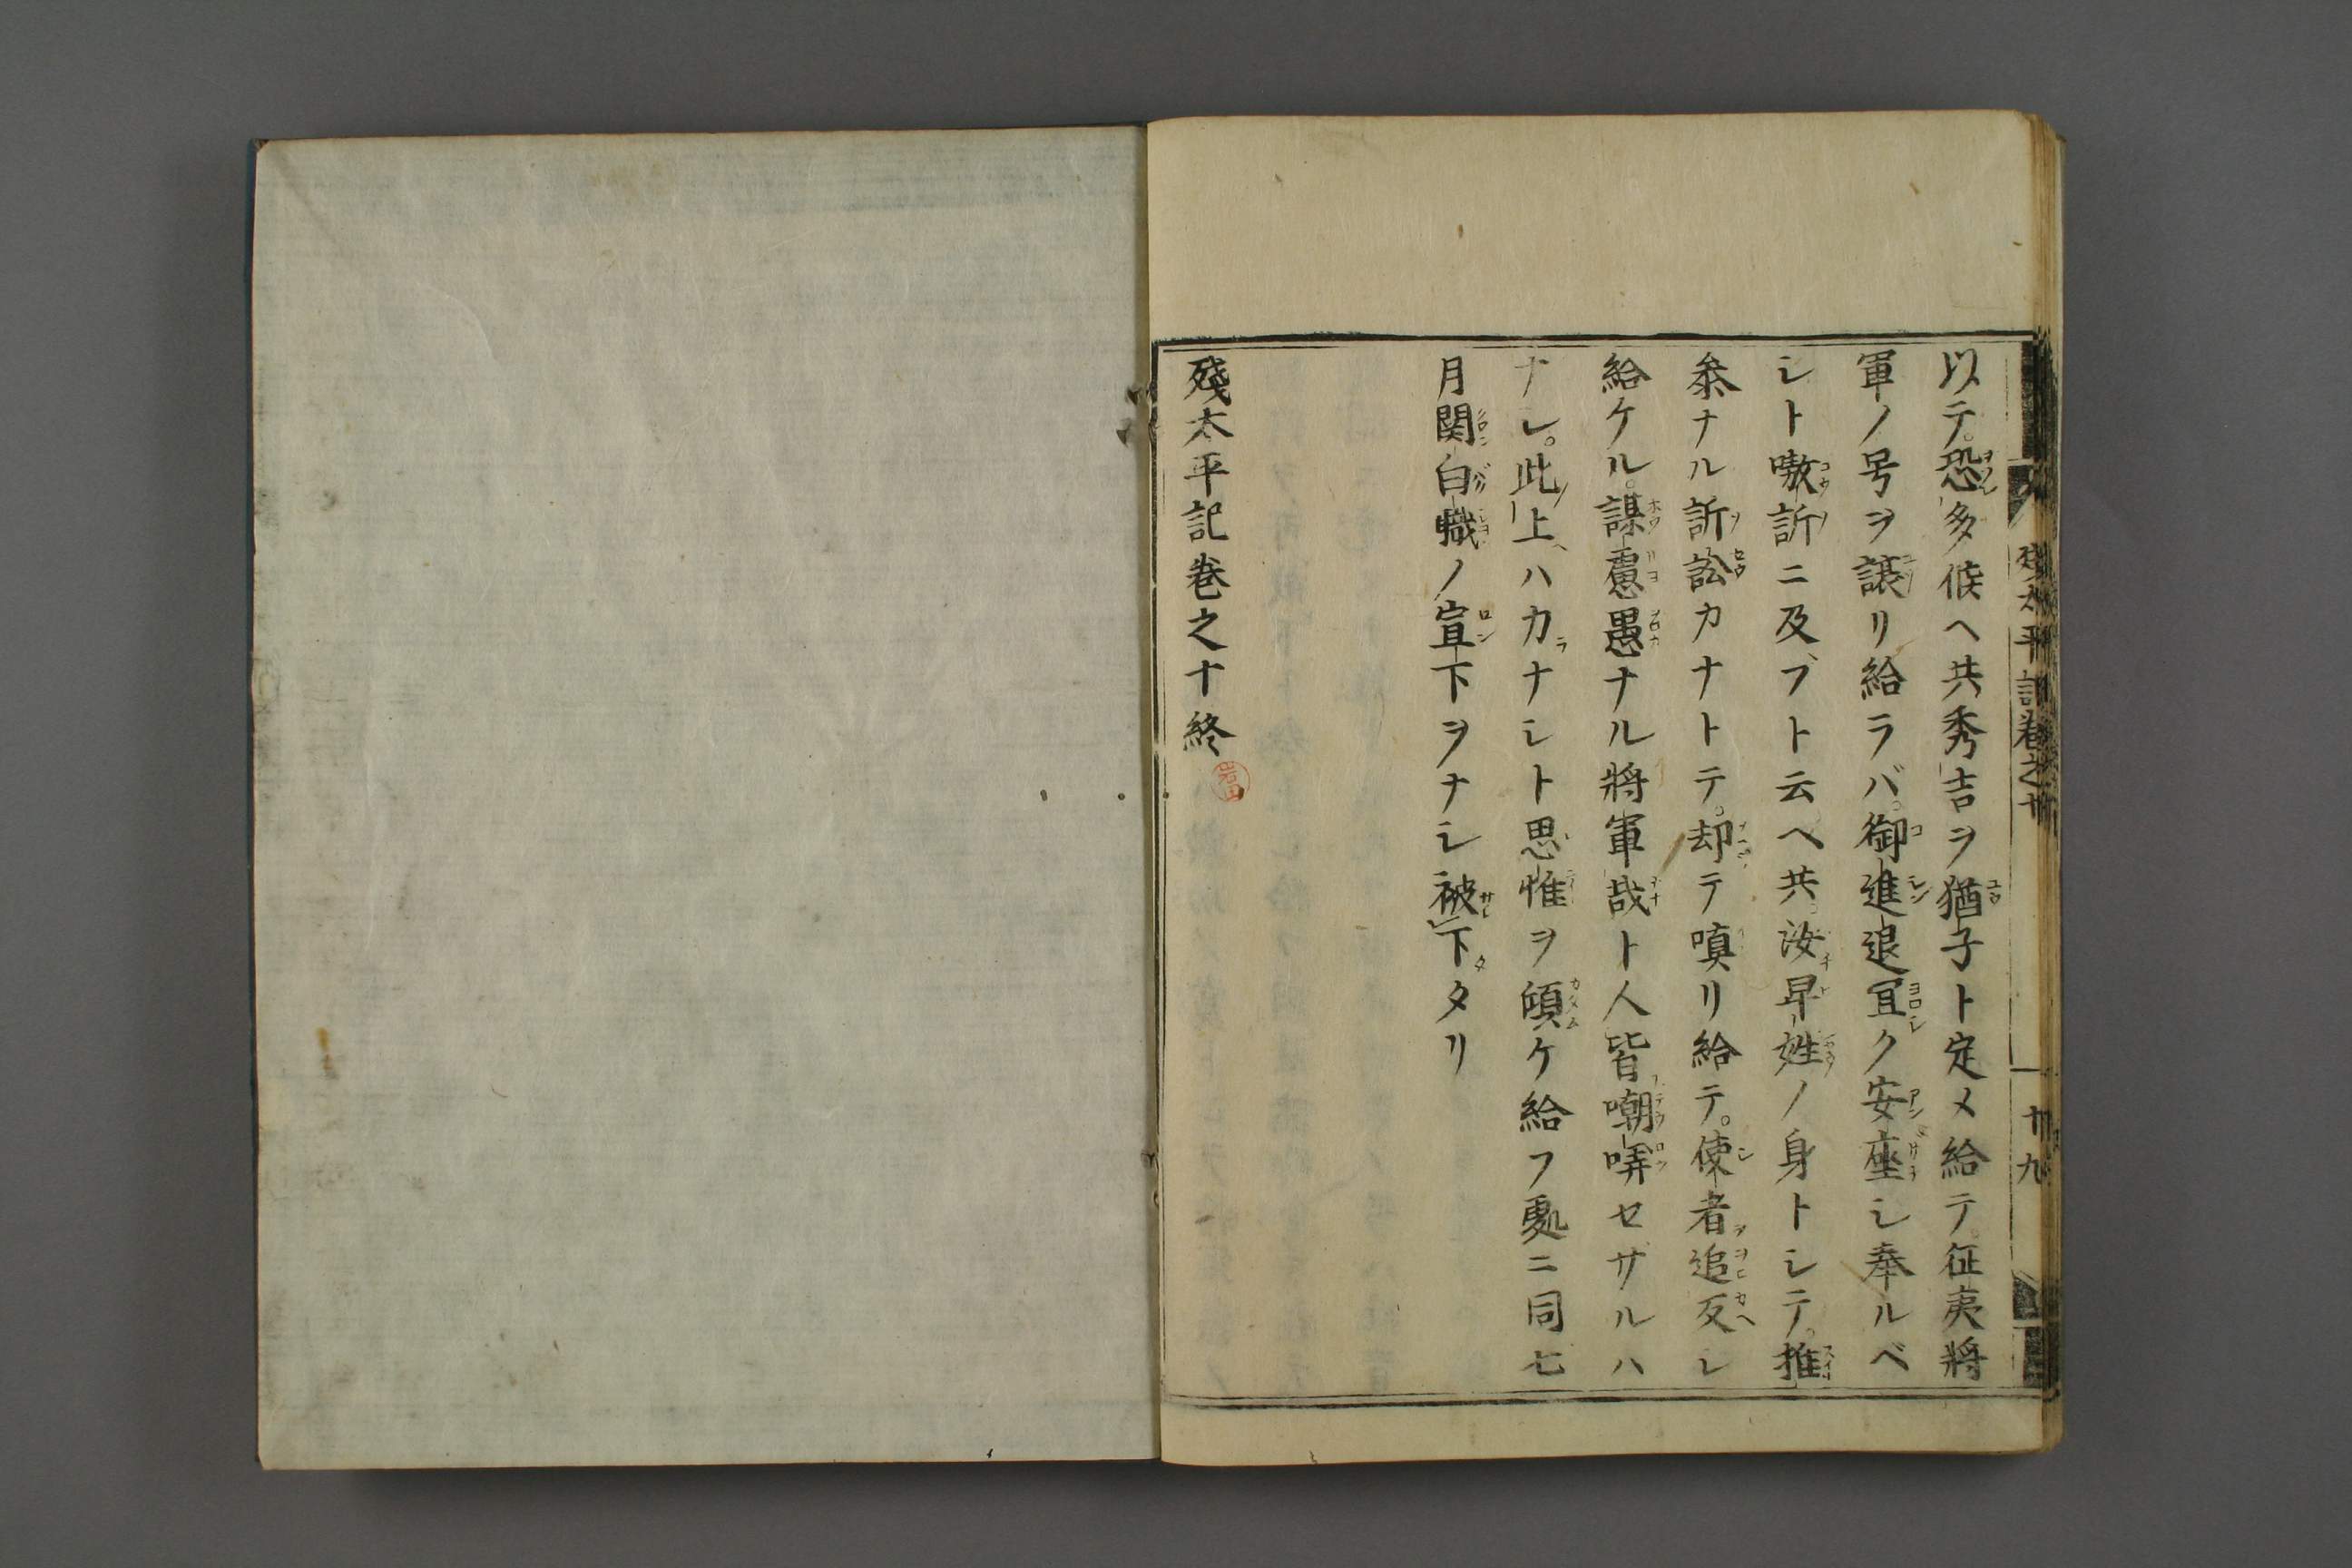 以テ。恐多候ヘ共秀吉ヲ猶子ト定メ給テ。征夷將
軍ノ号ヲ譲リ給ラバ。御進退冝ク安座シ奉ルベ
シト嗷訴ニ及ブト云ヘ共。汝早姓ノ身トシテ。推
叅ナル訴訟カナトテ。却テ嗔リ給テ。使者追反シ
給ケル。謀慮愚ナル將軍哉ト人皆嘲哢セザルハ
ナシ。此上ハカナシト思惟ヲ傾ケ給フ處ニ同七
月関白職ノ宣下ヲナシ被下タリ
殘太平記巻之十終
岩田
殘太平記巻之十
十九